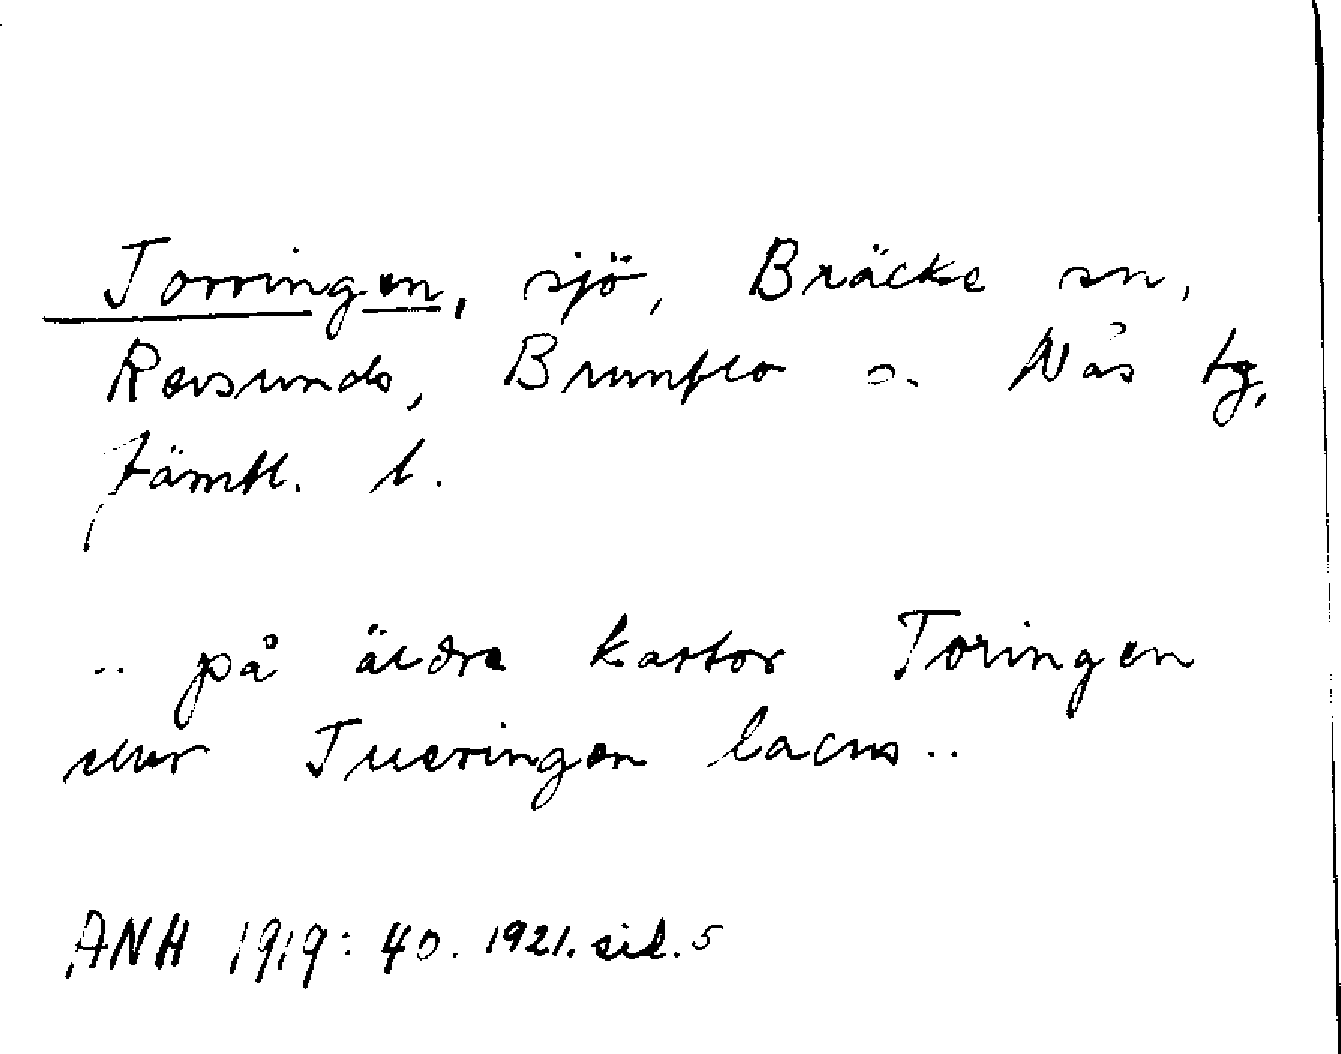 Torringen, sjö, Bräcke sn,
Revsunds, Brunflo o. Näs tg,
Jämtl. l.
.. på äldre kartor Toringen
eller Tueringen lacus..
ANH 1919:40. 1921. sid. 5